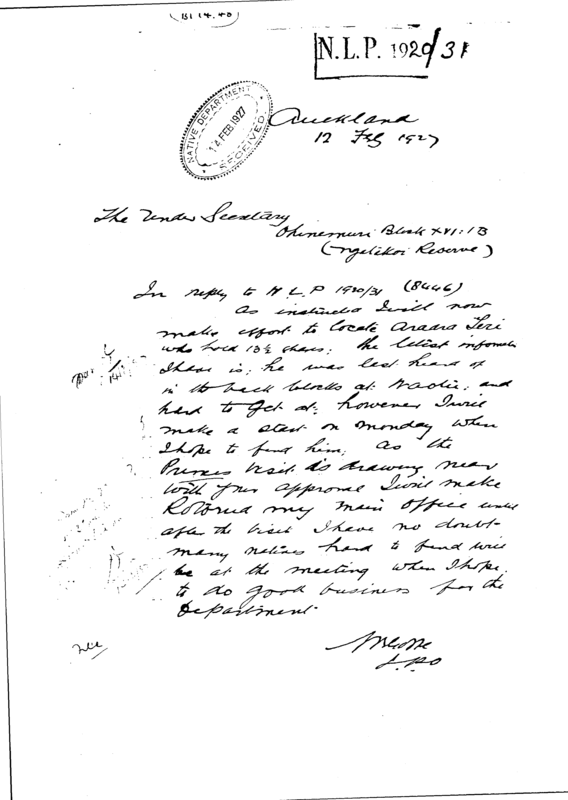 (BI 14.40)
N.L.P. 1920/31
NATIVE DEPARTMENT
14 FEB 1927
RECEIVED
Auckland
12 Feb 1927
The Under Secretary
Ohinemuri Block XVI: 1B
Reserve)
In reply to N L P 1920/31 (8446)
As instructed I will now
make effort to locate
who hold 13½ shares; the latest
I have is; he was last heard of
in the back blocks at and
hard to get at; however I will
make a start on Monday when
I hope to find him; As the
Princes visit is drawing near
With your approval I will make
Rotorua my main office until
after the visit I have no doubt
many natives hard to find will
be at the meeting when I hope
to do good business for the
Department
L.P.O
File